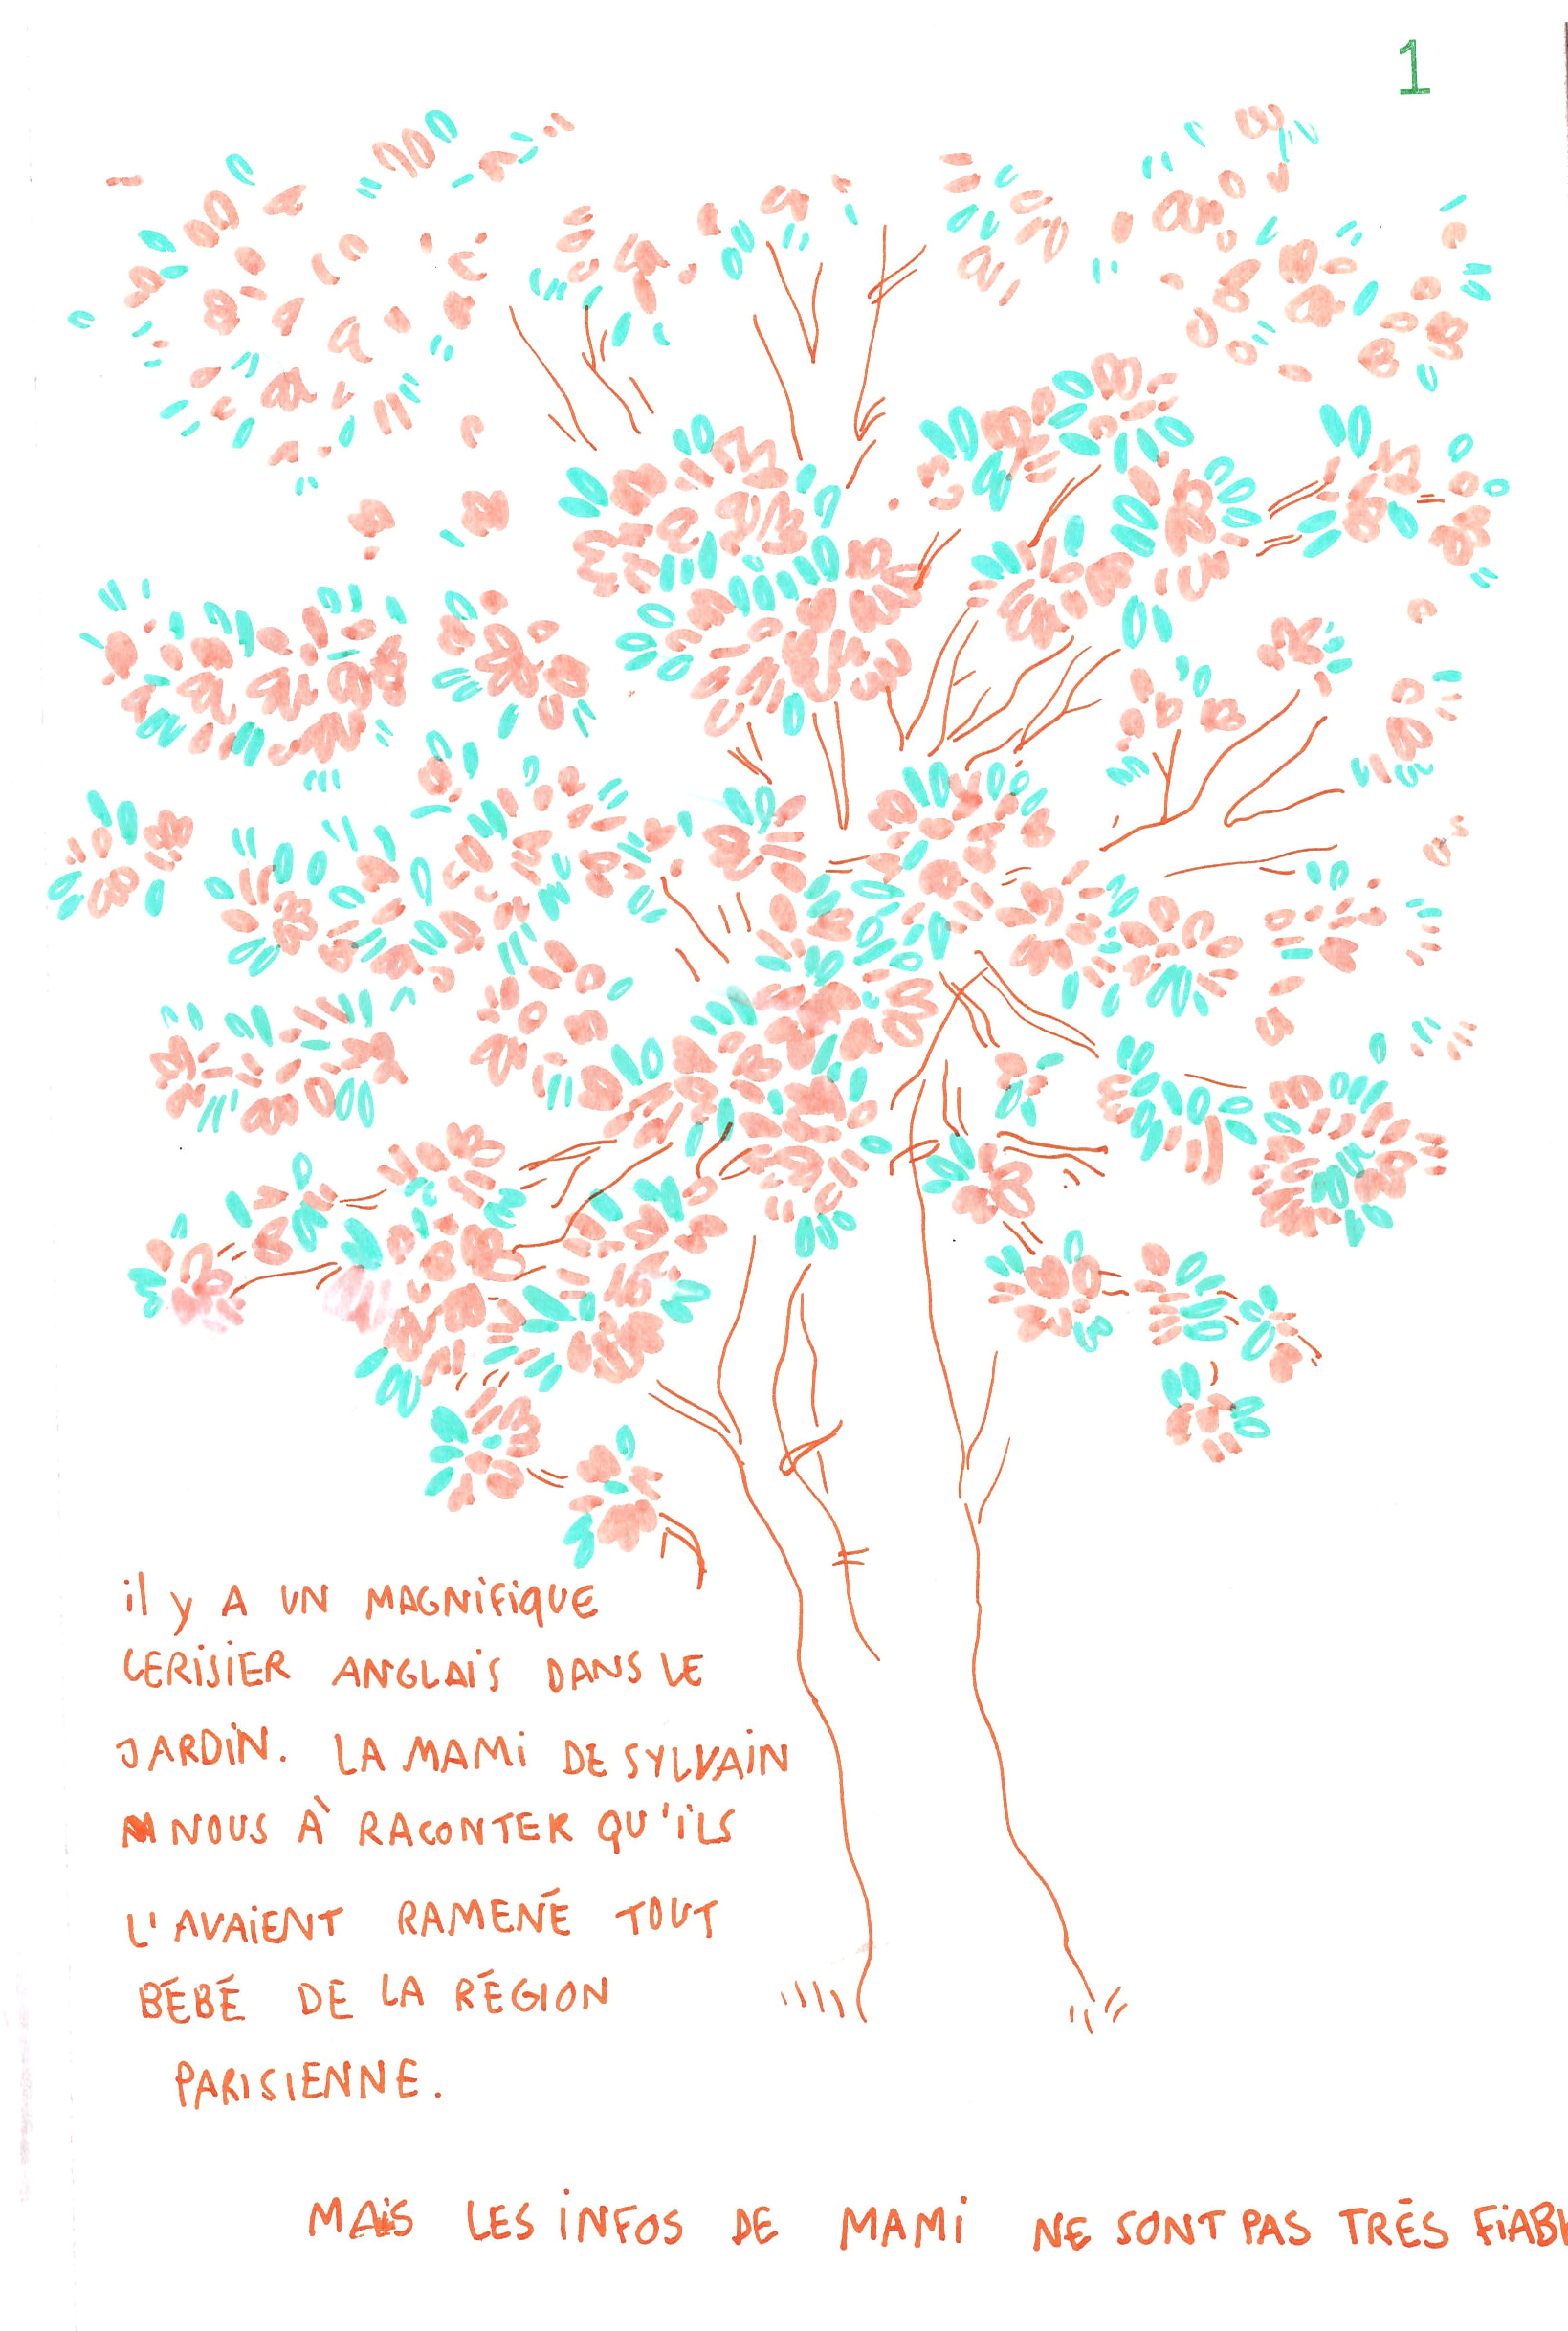 1
il y A UN MAGNIFIQUE
CERISIER ANGLAIS DANS LE
JARDIN. LA MAMI DE SYLVAIN
NOUS À RACONTER QU'ILS
L'AVAIENT RAMENÉ TOUT
BÉBÉ DE LA RÉGION
PARISIENNE.
MAIS LES INFOS DE MAMI NE SONT PAS TRÉS FIAB